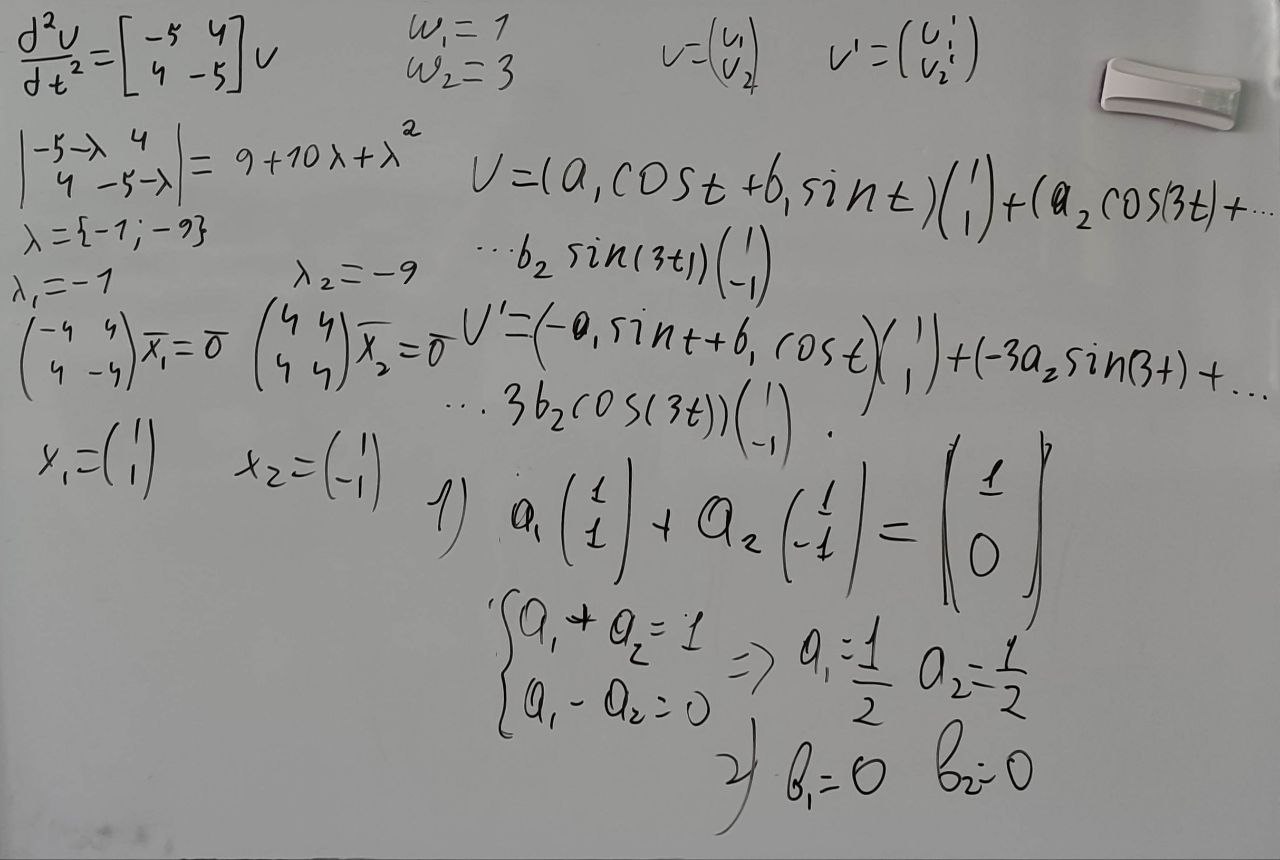 d²u/dt² = [-5 4; 4 -5] u
w₁ = 1
w₂ = 3
u = (u₁; u₂) u' = (u₁'; u₂')
|-5-λ 4; 4 -5-λ| = 9+10λ+λ²
λ = {-1; -9}
λ₁ = -1 λ₂ = -9
(-4 4; 4 -4) x̄₁ = 0̄ (4 4; 4 4) x̄₂ = 0̄
x₁ = (1; 1) x₂ = (1; -1)
U = (a₁cost + b₁sint)(1; 1) + (a₂cos(3t) + ...
...b₂ sin(3t))(1; -1)
U' = (-a₁sint + b₁cost)(1; 1) + (-3a₂sin(3t) + ...
... 3b₂cos(3t))(1; -1).
1) a₁(1; 1) + a₂(1; -1) = (1; 0)
{a₁ + a₂ = 1
a₁ - a₂ = 0 => a₁ = 1/2 a₂ = 1/2
2) b₁ = 0 b₂ = 0